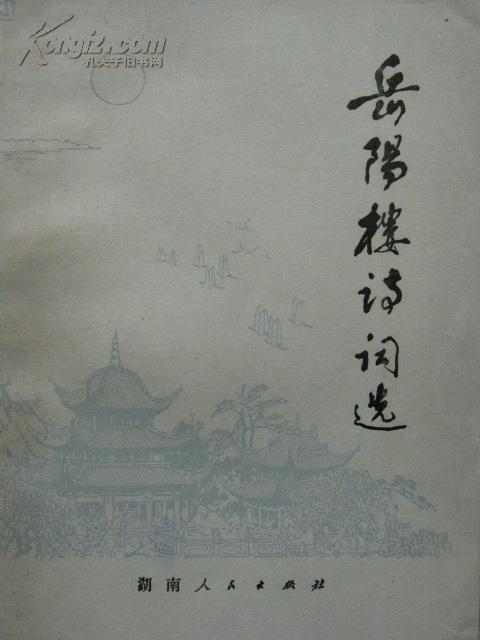 Kongfz.com
孔夫子旧书网
岳陽楼诗词选
湖南人民出版社